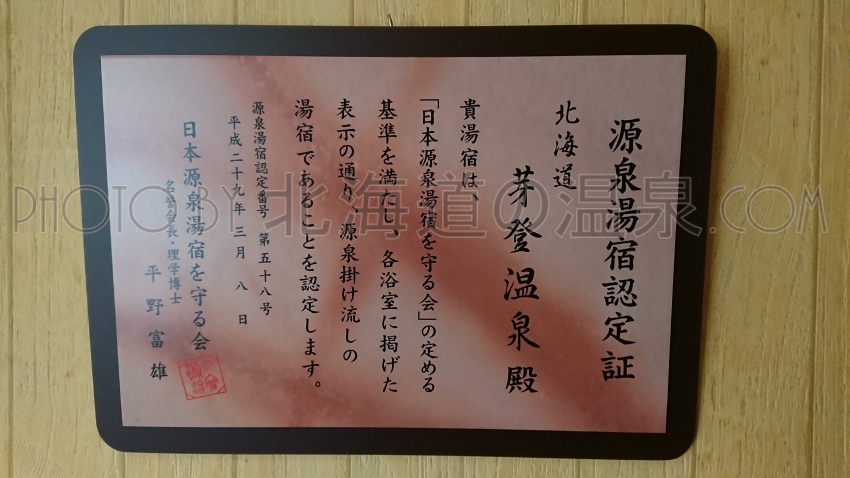 源泉湯宿認定証
北海道
芽登温泉殿
貴湯宿は、
「日本源泉湯宿を守る会」の定める
基準を満たし、各浴室に掲げた
表示の通り、源泉掛け流しの
湯宿であることを認定します。
源泉湯宿認定番号 第五十八号
平成二十九年三月八日
日本源泉湯宿を守る会
名誉会長・理学博士
平野富雄
PHOTO BY 北海道@温泉.COM